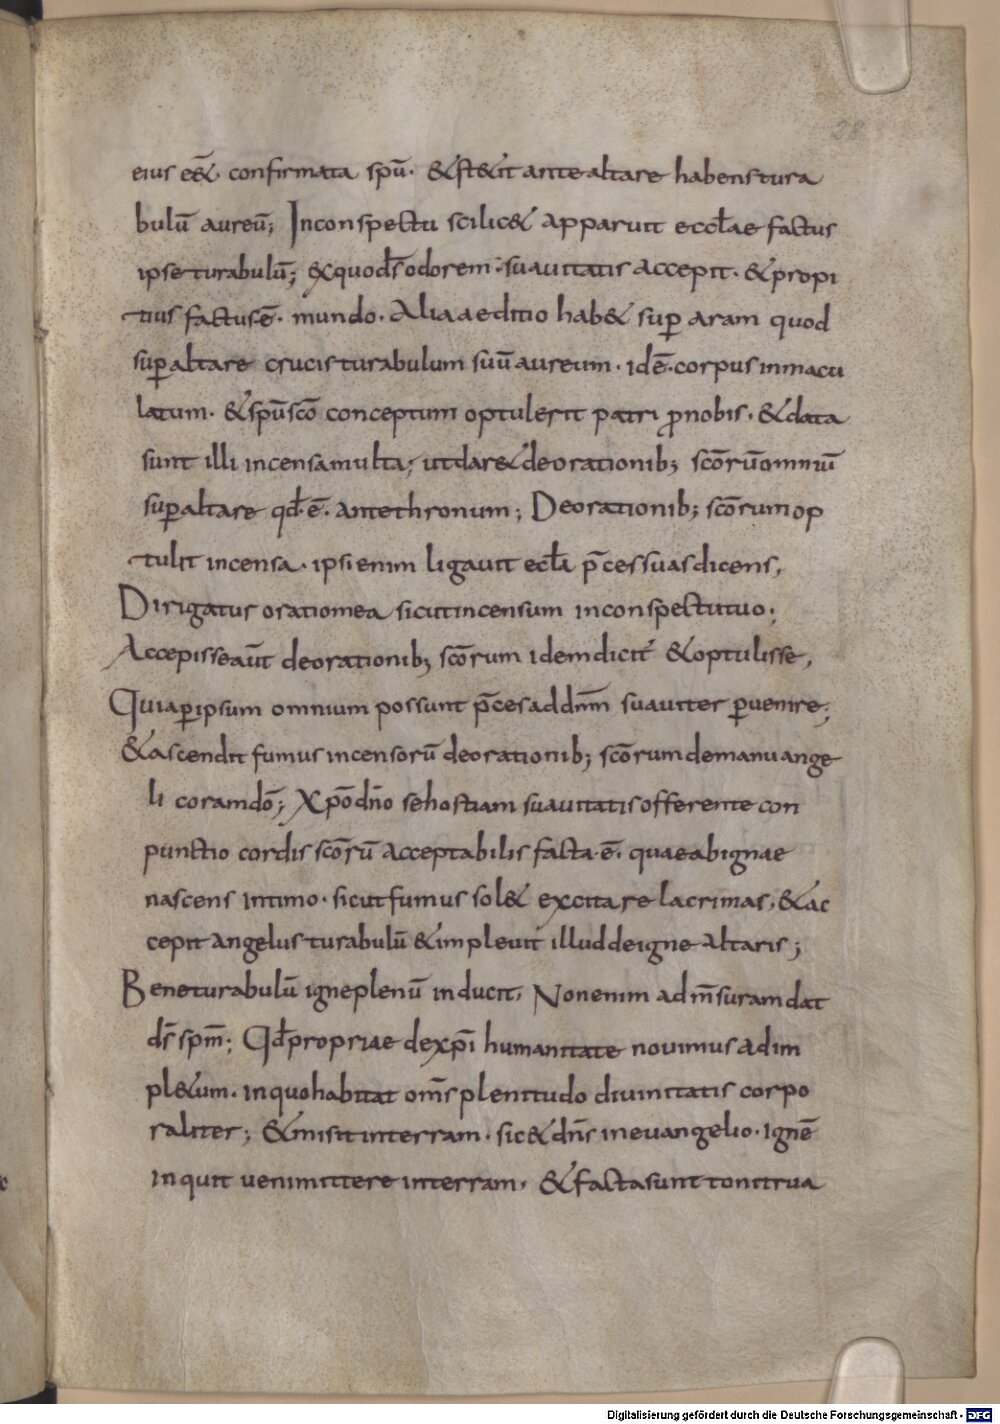 38
eius eēt. confirmata spū. & stetit ante altare habens tura
bulū aureū; In conspectu scilicet apparuit eccłae factus
ipse turabulū; ex quo d̄s odorem suauitatis accepit. & propi
tius factus ē. mundo. Alia aeditio habet sup aram quod
sup altare crucis turabulum suū aureum. idē. corpus inmacu
latum. & spū sc̄o conceptum optulerit patri pro nobis. & data
sunt illi incensa multa, ut daret de orationib; sc̄orū omniū
sup altare qd̄ ē. ante thronum; De orationib; sc̄orum op
tulit incensa. ipsi enim ligauit eclā p̄ces suas dicens,
Dirigatur oratio mea sicut incensum in conspectu tuo;
Accepisse aūt de orationib; sc̄orum idem dicit & optulisse,
Quia per ipsum omnium possunt p̄ces ad dn̄m suauiter peruenire;
& ascendit fumus incensorū de orationib; sc̄orum de manu ange
li coram dō; Xp̄o dn̄o se hostiam suauitatis offerente con
punctio cordis sc̄orū acceptabilis facta ē. quae ab igne
nascens intimo. sicut fumus solet excitare lacrimas, & ac
cepit angelus turabulū & impleuit illud de igne altaris;
Bene turabulū igne plenū inducit, Non enim ad m̄suram dat
d̄s sp̄m; Qd̄ propriae de xp̄i humanitate nouimus adim
pletum. in quo habitat om̄s plenitudo diuinitatis corpo
raliter; & misit in terram. sic & dn̄s in euangelio. Ignē
inquit ueni mittere in terram, & facta sunt tonitrua
Digitalisierung gefördert durch die Deutsche Forschungsgemeinschaft - DFG